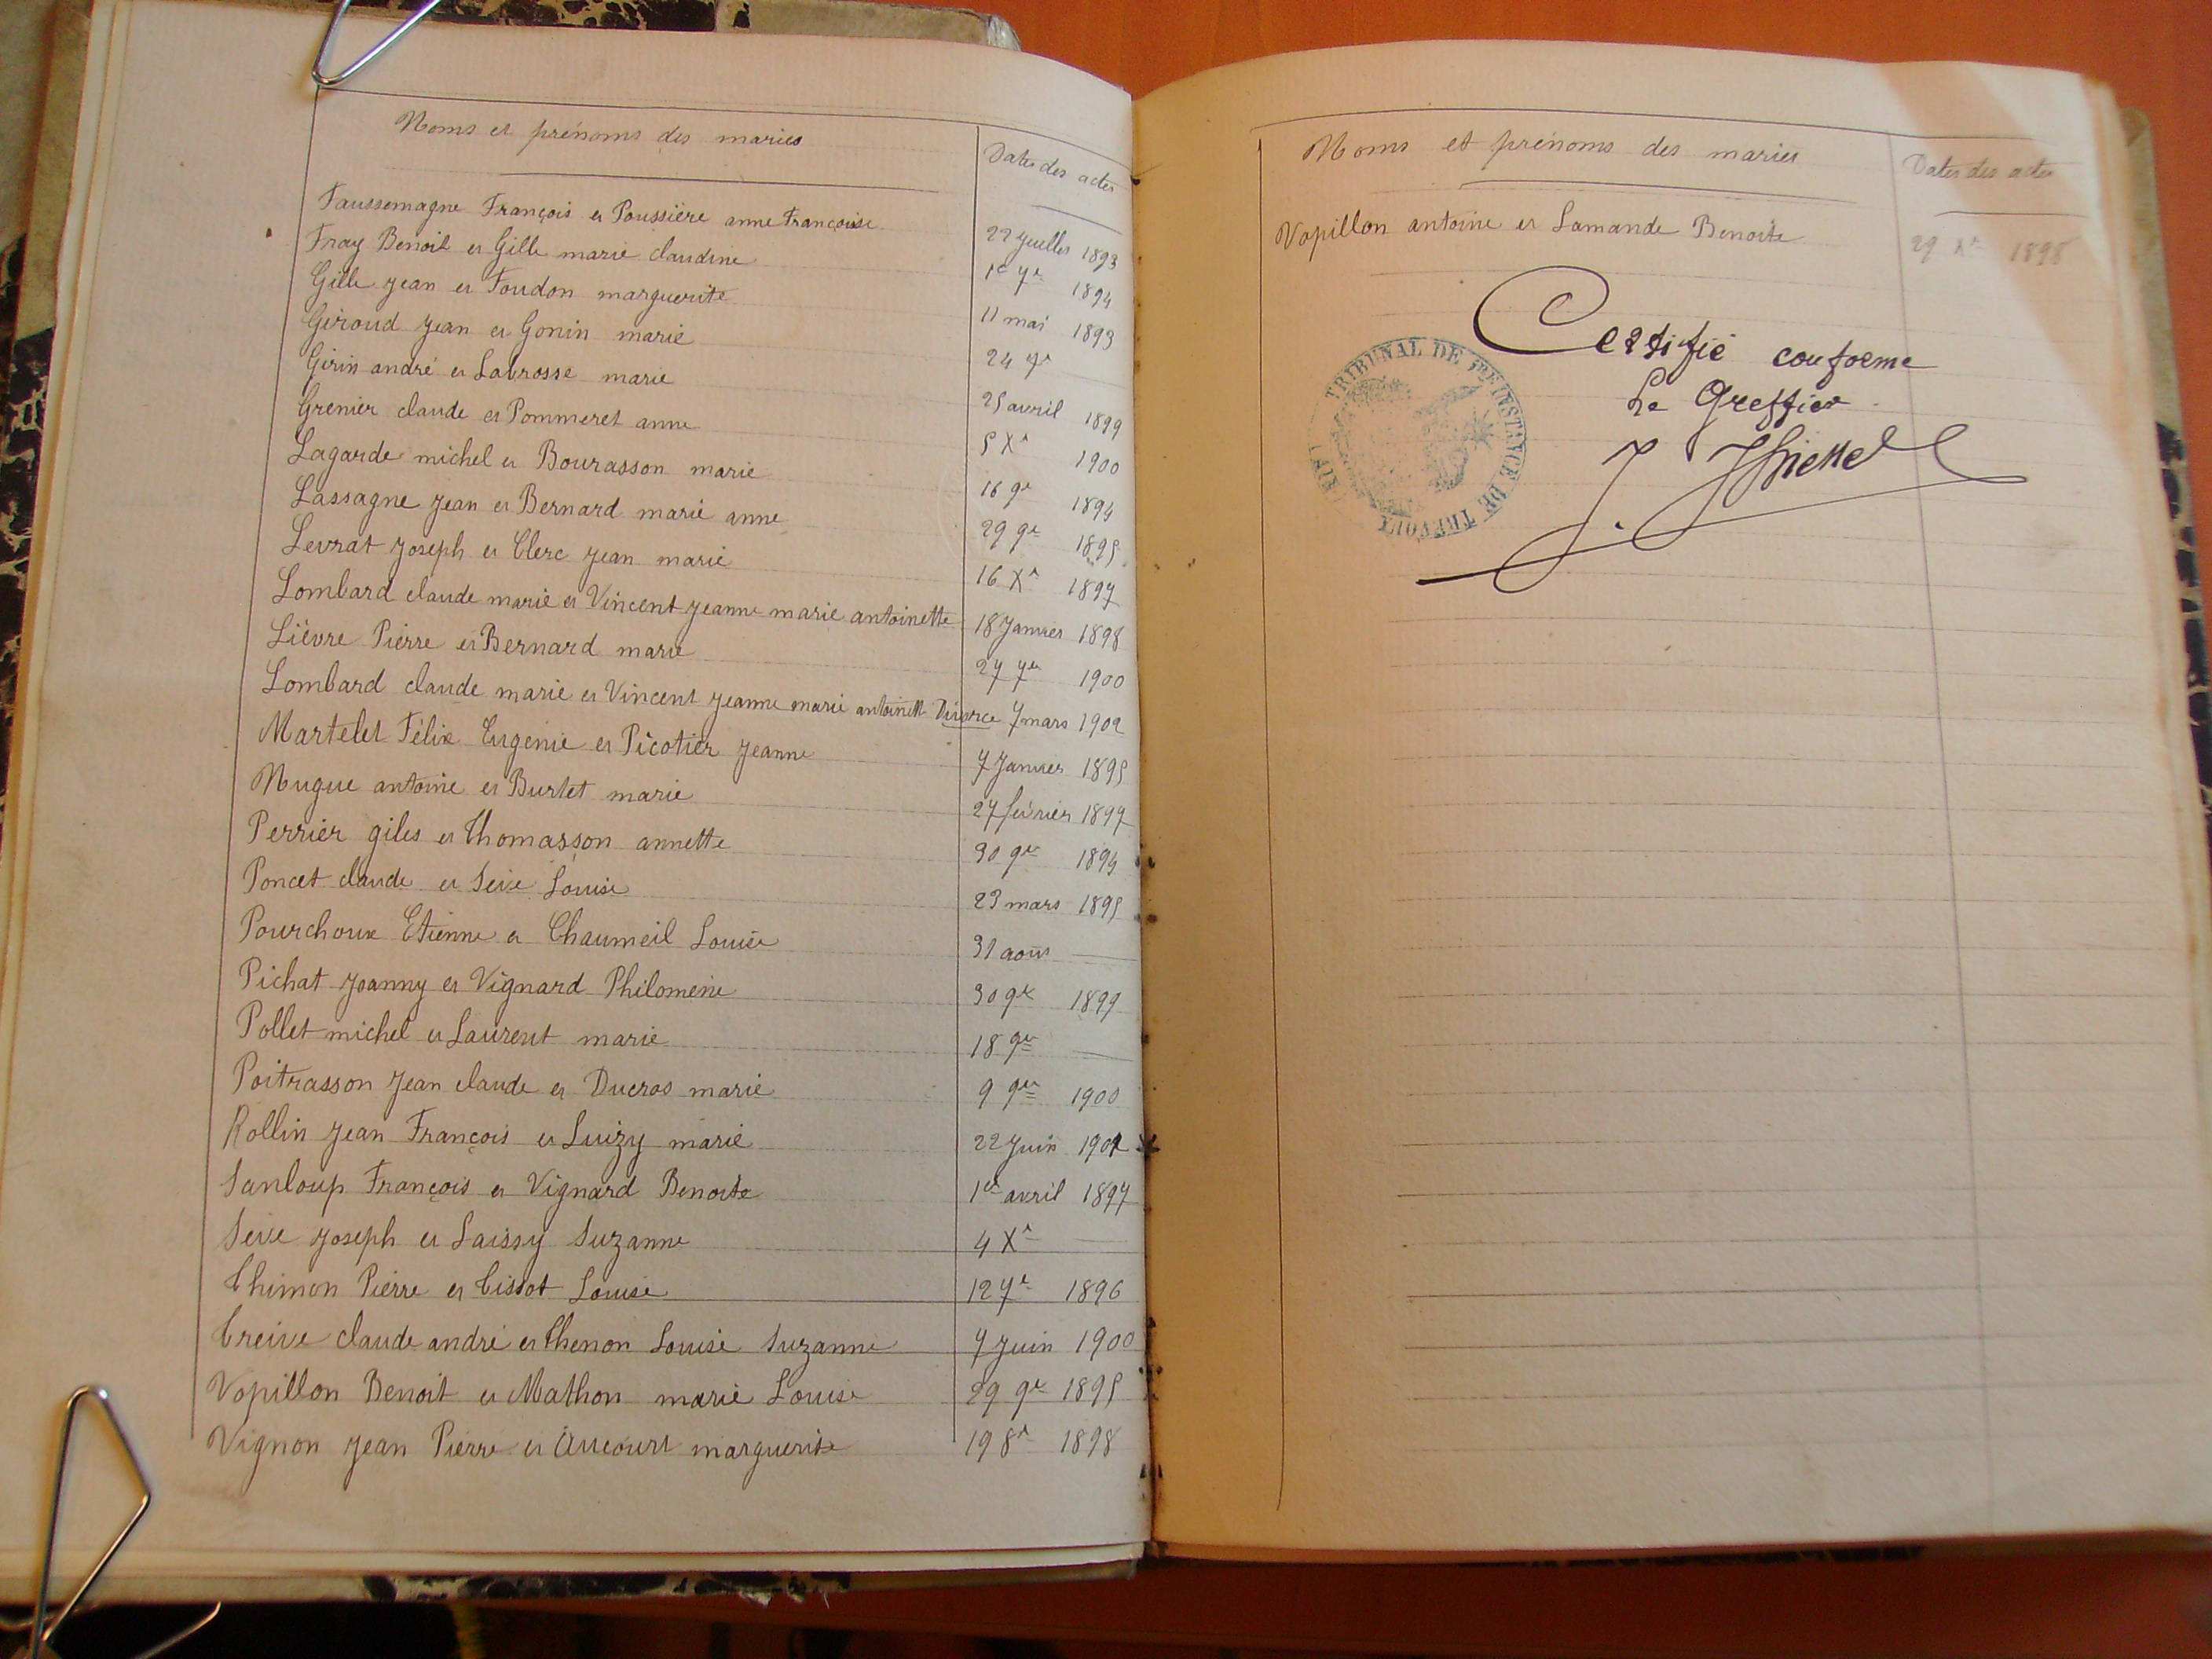 Noms et prénoms des mariés
Dates des actes
Faussemagne François et Poussière anne Françoise 22 Juillet 1893
Fray Benoit et Gille marie claudine 1er 7e 1894
Gille Jean et Foudon marguerite 11 mai 1893
Giroud Jean et Gonin marie 24 7e
Girin andré et Labrosse marie 25 avril 1899
Grenier claude et Pommeret anne 5 Xe 1900
Lagarde michel et Bourasson marie 16 9e 1894
Lassagne Jean et Bernard marie anne 29 9e 1895
Levrat Joseph et Clerc Jean marie 16 Xe 1897
Lombard claude marie et Vincent Jeanne marie antoinette 18 Janvier 1898
Lièvre Pierre et Bernard marie 27 7e 1900
Lombard claude marie et Vincent Jeanne marie antoinett Divorce 7 mars 1902
Martelet Félix Eugénie et Picotier Jeanne 7 Janvier 1895
Nugue antoine et Burlet marie 27 février 1897
Perrier giles et Thomasson annette 30 9e 1894
Poncet claude et Seive Louise 23 mars 1895
Pourchoux Etienne et Chaumeil Louise 31 août
Pichat Joanny et Vignard Philomène 30 9e 1899
Pollet michel et Laurent marie 18 9e
Poitrasson Jean claude et Ducros marie 9 9e 1900
Rollin Jean François et Luizy marie 22 Juin 1902
Sanloup François et Vignard Benoite 1er avril 1897
Seive Joseph et Laissy Suzanne 4 Xe
Thimon Pierre et Tissot Louise 12 7e 1896
Treive claude andré et Thenon Louise Suzanne 7 Juin 1900
Vopillon Benoit et Mathon marie Louise 29 9e 1895
Vignon Jean Pierre et Aucourt marguerite 19 8e 1898
Noms et prénoms des mariés
Dates des actes
Vopillon antoine et Lamande Benoite 29 Xe 1898
Certifié conforme
Le Greffier
TRIBUNAL DE 1RE INSTANCE DE TRÉVOUX (AIN)